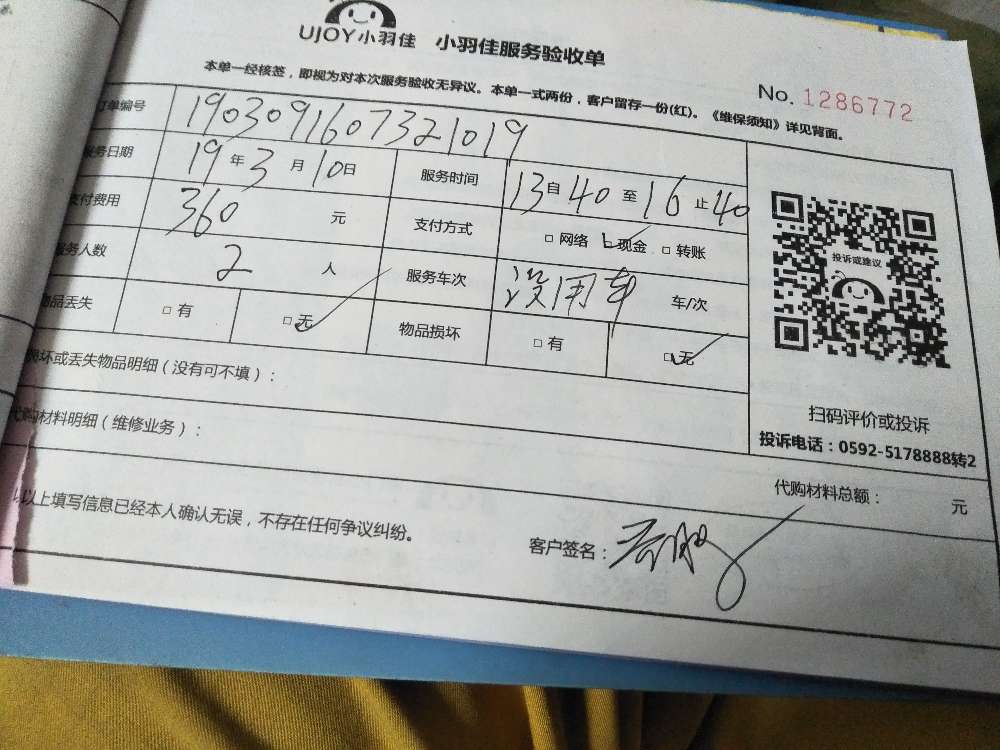 UJOY小羽佳 小羽佳服务验收单
本单一经核签，即视为对本次服务验收无异议。本单一式两份，客户留存一份(红)。《维保须知》详见背面。
No. 1286772
订单编号 1903091607321019
服务日期 19年3月10日 服务时间 13自40至16止40
支付费用 360 元 支付方式 □网络 ☑现金 □转账
服务人数 2 人 服务车次 没用车 车/次
物品丢失 □有 ☑无 物品损坏 □有 ☑无
损坏或丢失物品明细（没有可不填）：
代购材料明细（维修业务）：
投诉或建议
扫码评价或投诉
投诉电话：0592-5178888转2
代购材料总额： 元
以上填写信息已经本人确认无误，不存在任何争议纠纷。
客户签名：